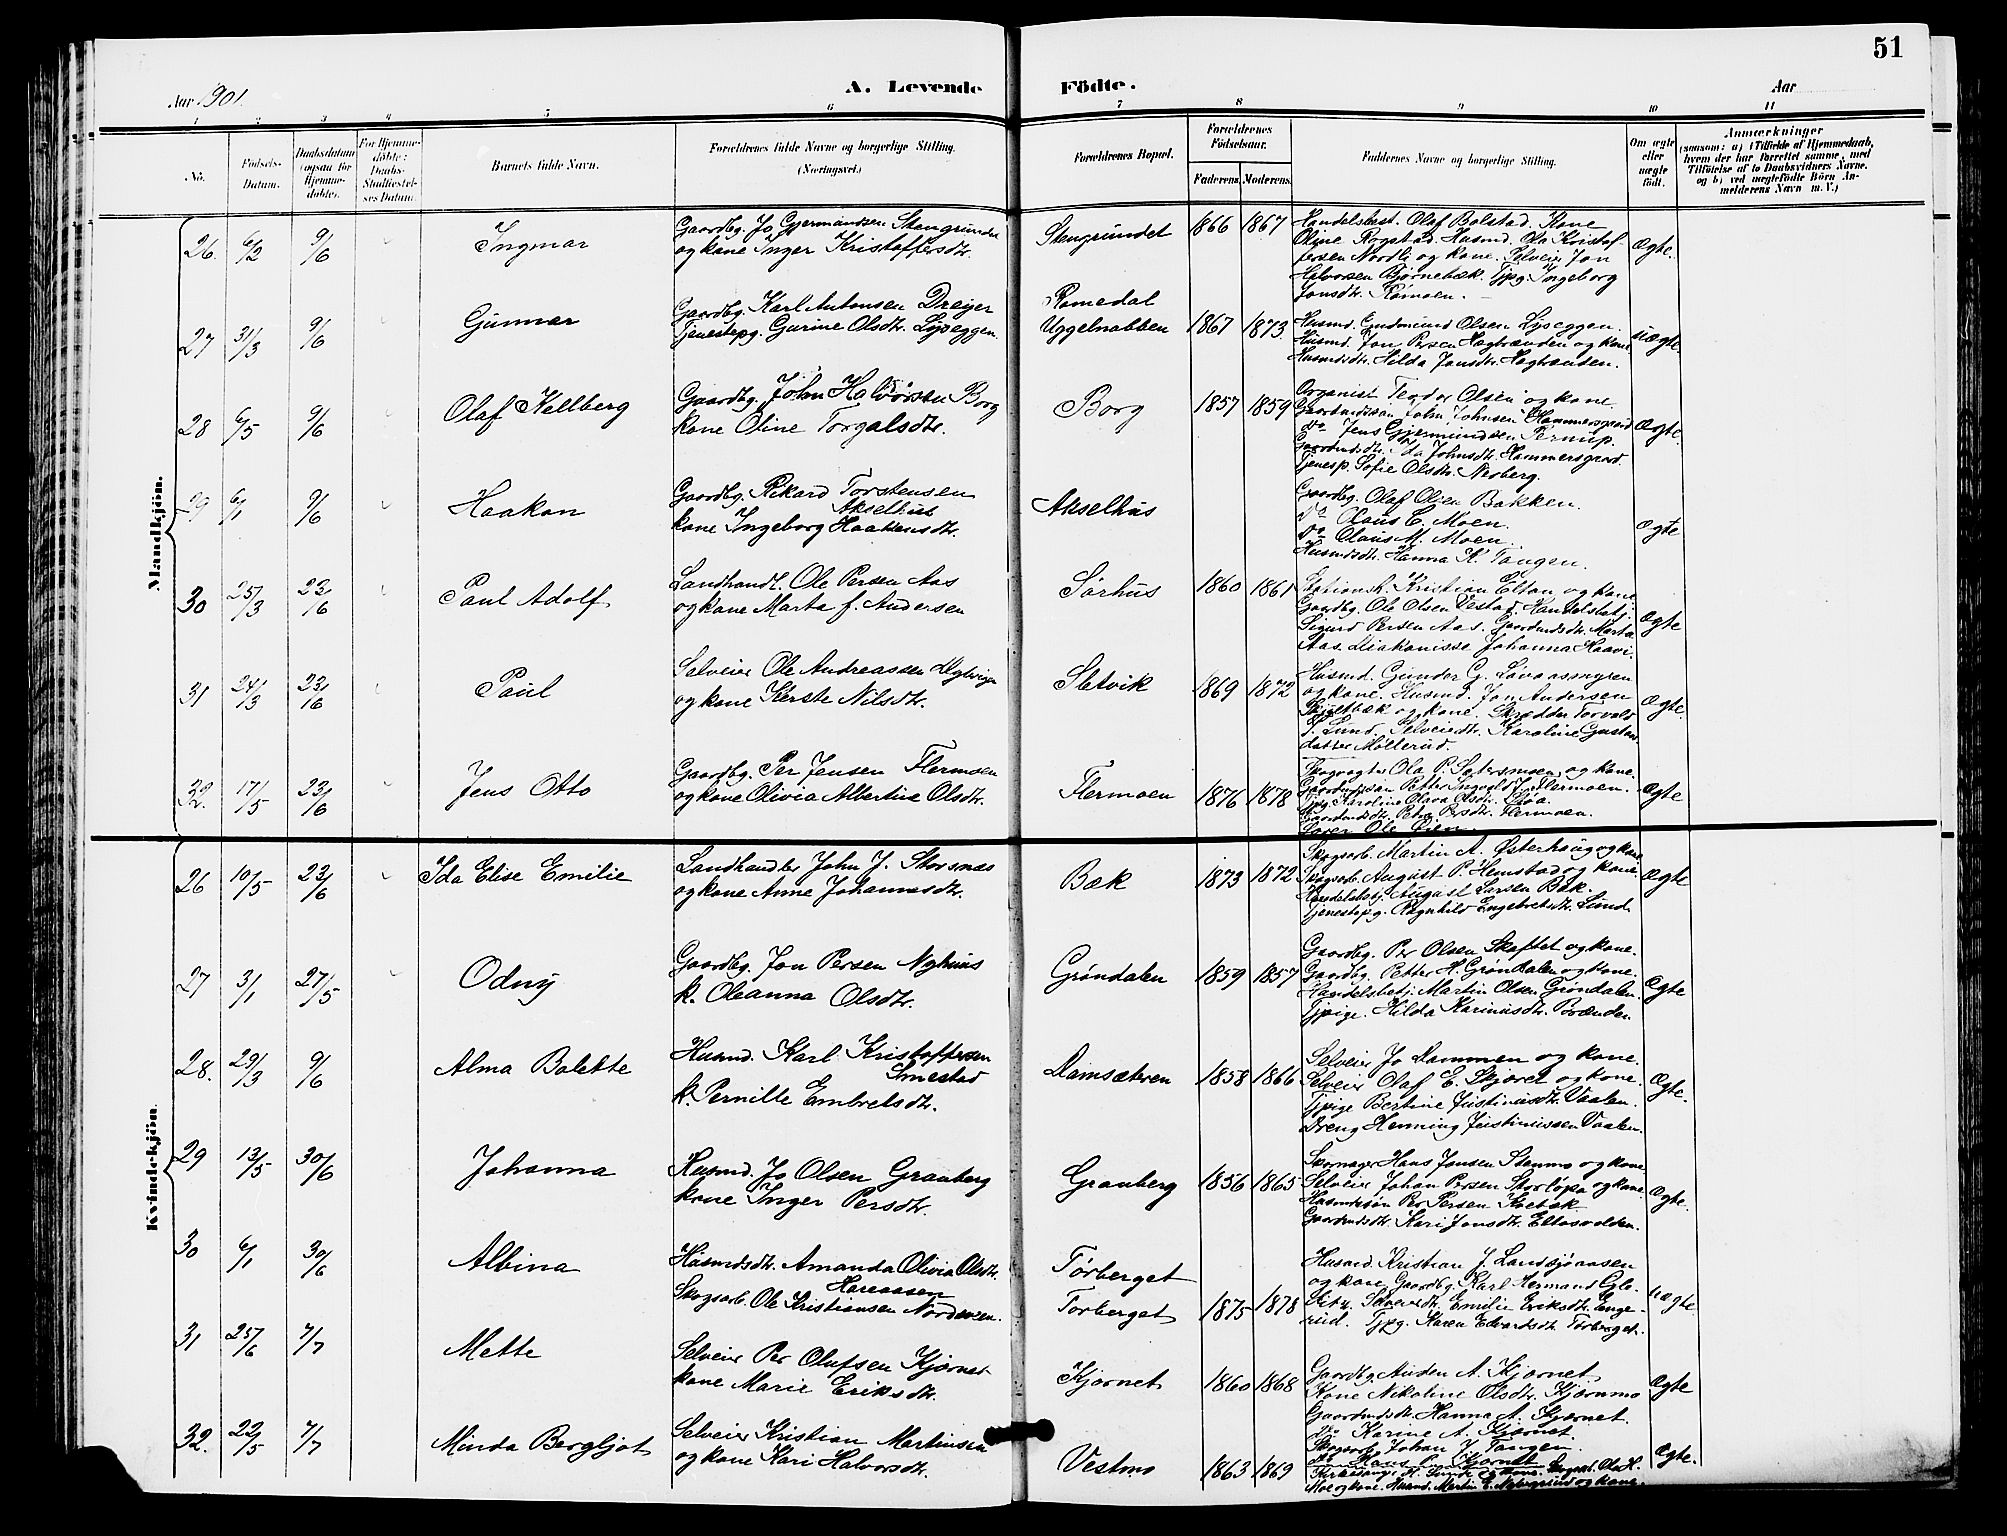 51
Aar 1901.
A. Levende Födte.
Aar
1 2 3 4 5 6 7 8 9 10 11
No.
Födsels-Datum.
Daabsdatum (ogsaa for Hjemmedöbte).
For Hjemmedöbte: Daabs-Stadfæstelses Datum.
Barnets fulde Navn.
Forældrenes fulde Navne og borgerlige Stilling. (Næringsvei.)
Forældrenes Bopæl.
Forældrenes Födselsaar.
Faderens. Moderens.
Faddernes Navne og borgerlige Stilling.
Om ægte eller uægte födt.
Anmærkninger
(saasom: a) i Tilfælde af Hjemmedaab, hvem der har forrettet samme, med Tilföielse af to Daabsvidners Navne, og b) ved uægtefödte Börn Anmelderens Navn m. V.)
Mandkjön.
26. 6/2 9/6 Ingmar
Gaardbg. Jo Gjermundsen Stangrundet
og kone Inger Kristoffersdtr.
Stangrundet 1866 1867
Handelsbest. Olaf Bolstad. Kone
Oline Rogstad. Husmd. Ola Kristof-
fersen Nordli og kone. Selveier Jon
Halvorsen Bjørnebæk. Tjpg. Ingeborg
Jonsdtr. Rømoen.
Ægte.
27 31/3 9/6 Gunnar
Gaardbg. Karl Antonsen Dreyer
Tjenestepg. Gurine Olsdtr. Lyseggen.
Romedal
Uggelnabben 1867 1873.
Husmd. Gudmund Olsen Lyseggen.
Husmd. Jon Persen Høgbrænden og kone
Husmdsdtr. Hilda Jonsdtr. Høgbrænden.
Uægte.
28 6/5 9/6 Olaf Kellberg
Gaardbg. John Halvorsen Borg
kone Oline Torgalsdtr.
Borg 1857 1859
Organist Teodor Olsen og kone.
Gaardmdssøn John Johnsen Hammersgaard
do Jens Gjermundsen Ternup.
Gaardmdsdtr. Ida Johnsdtr. Hammersgaard.
Tjenesp. Sofie Olsdtr. Nerberg.
Ægte.
29 6/1 9/6 Haakon
Gaardbg. Rikard Torstensen
Akselhus
kone Ingeborg Haakensdtr.
Akselhus
Gaardbg. Olaf Olsen Bakken.
do Olaus C. Moen.
do Olaus M. Moen.
Husmdsdtr. Hanna K. Tangen.
Ægte
30 25/3 23/6 Paul Adolf
Landhandl. Ole Persen Aas
og kone Marta f. Andersen
Sørhus 1860 1861
Stationsh. Kristian Elton og kone.
Gaardbg. Ole Olsen Vestad. Handelsbetj.
Sigurd Persen Aas. Gaardmdsdtr. Marta
Aas. Diakonisse Johanna Haavi.
Ægte
31 24/3 23/6 Paul
Selveier Ole Andreassen
og kone Kerste Nilsdtr.
Sletvik 1869 1872
Husmd. Gunder G. Løvaasmyren
og kone. Husmd. Jon Andersen
Skjeltbæk og kone. Skrædder Torvald
P. Lund. Selveierdtr. Karoline Gustav
datter Møllerud.
Ægte.
32. 17/5 23/6 Jens Otto
Gaardbg. Per Jensen Flermoen
og kone Olivia Albertine Olsdtr.
Flermoen 1876 1878
Skogvogter Ola P. Sætersmoen og kone.
Gaardmdssøn Petter Ingvald J. Flermoen.
Tjpg. Karoline Olava Olsdtr.
Gaardmdsdtr. Petra Persdtr. Flermoen.
Ægte
Kvindekjön.
26 10/5 23/6 Ida Elise Emilie
Landhandler John J. Storsnæs
og kone Anne Johannesdtr.
Bæk 1873 1872
Skogsarb. Martin A. Østerhaug og kone
Skogsarb. August P. Hemstad og kone.
Handelsbetj. August Larsen Bæk.
Tjenestepg. Ragnhild Engebretsdtr. Lund.
Ægte
27 3/1 27/5 Odny
Gaardbg. Jon Persen Nyhuus
k. Oleanna Olsdtr.
Grøndalen 1859 1857
Gaardbg. Per Olsen Skaftet og kone.
Gaardbg. Petter H. Grøndalen og kone.
Handelsbetj. Martin Olsen Grøndalen.
Tjpige. Hilda Karinusdtr. Brænden
Ægte
28. 29/3 9/6 Alma Bolette
Husmd. Karl Kristoffersen
Smestad
k. Pernille Embretsdtr.
Damsæteren 1858 1866
Selveier Jo Dammen og kone.
Selveier Olaf E. Skjæret og kone.
Tjpige Bertine Justinusdtr. Vaalen.
Dreng Henning Justinussen Vaalen.
Ægte.
29 13/5 30/6 Johanna
Husmd. Jo Olsen Granberg
kone Inger Persdtr.
Granberg 1856 1865
Skomager Hans Jonsen Stenmo og kone
Selveier Johan Persen Storløpa og kone.
Husmdssøn Per Persen Kvebæk
Gaardmdsdtr. Kari Jonsdtr. Eltasvolden.
Ægte.
30 6/1 30/6 Albina
Husmdsdtr. Amanda Olivia Olsdtr.
Hareaasen
Skogsarb. Ole Kristiansen Nordmoen.
Tørberget
Tørberget 1875 1878
Husmd. Kristian J. Landsjøaasen
og kone. Gaardbg. Karl Hermand
Selveierdtr. Emilie Eriksdtr. Enge-
rud. Tjpg. Karen Edvardsdtr. Tørberget.
Uægte
31 25/6 7/7 Mette
Selveier Per Olufsen Kjørnet
kone Marie Eriksdtr.
Kjørnet 1860 1868
Gaardbg. Anders A. Kjørnet
Kone Nikoline Olsdtr. Kjørnmo
Gaardmdsdtr. Hanna A. Kjærnet.
do Karine A. Kjærnet.
Skogsarb. Johan J. Tangen.
do Hans P. Kjørnet
Ægte
32. 22/5 7/7 Minda Bergljot
Selveier Kristian Martinsen
og kone Kari Halvorsdtr.
Vestmo 1863 1869
Kirkesanger H. Lunde og kone.
Moe og kone. Husmd. Martin E. Nabogrund og kone.
Ægte.